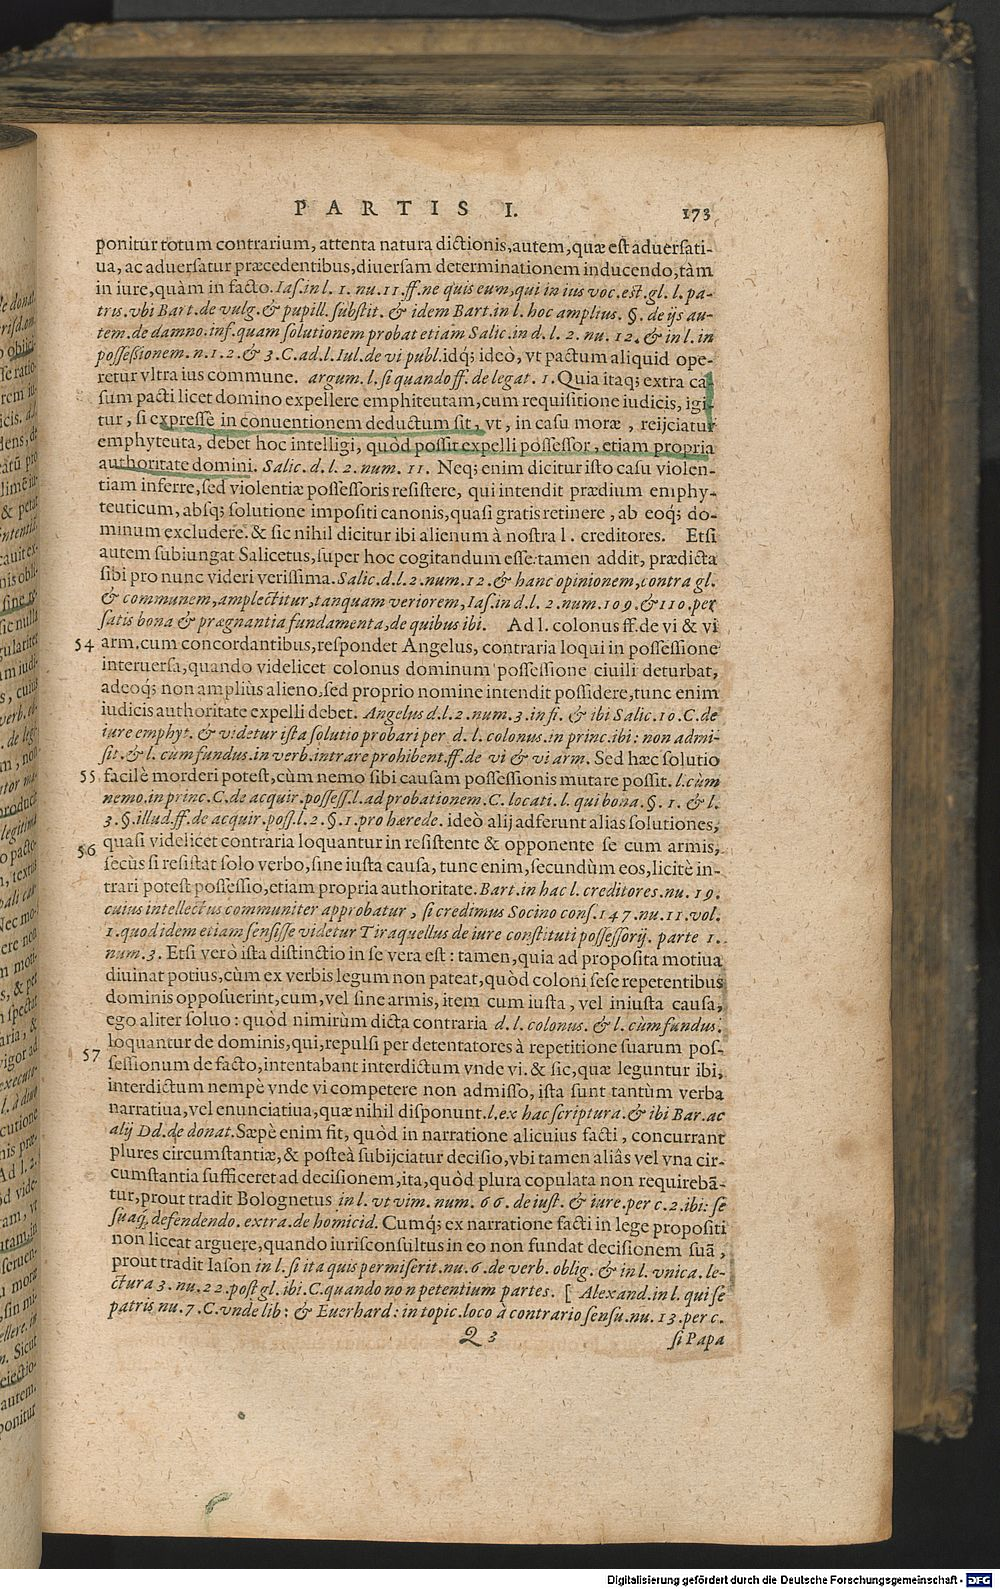 PARTIS I. 173
ponitur totum contrarium, attenta natura dictionis, autem, quæ est aduersati-
ua, ac aduersatur præcedentibus, diuersam determinationem inducendo, tàm
in iure, quàm in facto. Ias. in l. 1. nu. 11. ff. ne quis eum, qui in ius voc. est. gl. l. pa-
tris. vbi Bart. de vulg. & pupill. substit. & idem Bart. in l. hoc amplius. §. de ijs au-
tem. de damno. inf. quam solutionem probat etiam Salic. in d. l. 2. nu. 12. & in l. in
possessionem. n. 1. 2. & 3. C. ad. l. Iul. de vi publ. idq; ideò, vt pactum aliquid ope-
retur vltra ius commune. argum. l. si quando ff. de legat. 1. Quia itaq; extra ca-
sum pacti licet domino expellere emphiteutam, cum requisitione iudicis, igi-
tur, si expressè in conuentionem deductum sit, vt, in casu moræ, reijciatur
emphyteuta, debet hoc intelligi, quòd possit expelli possessor, etiam propria
authoritate domini. Salic. d. l. 2. num. 11. Neq; enim dicitur isto casu violen-
tiam inferre, sed violentiæ possessoris resistere, qui intendit prædium emphy-
teuticum, absq; solutione impositi canonis, quasi gratis retinere, ab eoq; do-
minum excludere. & sic nihil dicitur ibi alienum à nostra l. creditores. Etsi
autem subiungat Salicetus, super hoc cogitandum esse: tamen addit, prædicta
sibi pro nunc videri verissima. Salic. d. l. 2. num. 12. & hanc opinionem, contra gl.
& communem, amplectitur, tanquam veriorem, Ias. in d. l. 2. num. 109. & 110. per
satis bona & prægnantia fundamenta, de quibus ibi. Ad l. colonus ff. de vi & vi
54 arm. cum concordantibus, respondet Angelus, contraria loqui in possessione
interuersa, quando videlicet colonus dominum possessione ciuili deturbat,
adeoq; non ampliùs alieno, sed proprio nomine intendit possidere, tunc enim
iudicis authoritate expelli debet. Angelus d. l. 2. num. 3. in fi. & ibi Salic. 10. C. de
iure emphyt. & videtur ista solutio probari per d. l. colonus. in princ. ibi: non admi-
sit. & l. cùm fundus. in verb. intrare prohibent. ff. de vi & vi arm. Sed hæc solutio
55 facilè morderi potest, cùm nemo sibi causam possessionis mutare possit. l. cùm
nemo. in princ. C. de acquir. possess. l. ad probationem. C. locati. l. qui bona. §. 1. & l.
3. §. illud. ff. de acquir. poss. l. 2. §. 1. pro hærede. ideò alij adferunt alias solutiones,
56 quasi videlicet contraria loquantur in resistente & opponente se cum armis,
secùs si resistat solo verbo, sine iusta causa, tunc enim, secundùm eos, licitè in-
trari potest possessio, etiam propria authoritate. Bart. in hac l. creditores. nu. 19.
cuius intellectus communiter approbatur, si credimus Socino cons. 147. nu. 11. vol.
1. quod idem etiam sensisse videtur Tiraquellus de iure constituti possessorij. parte 1.
num. 3. Etsi verò ista distinctio in se vera est: tamen, quia ad proposita motiua
diuinat potius, cùm ex verbis legum non pateat, quòd coloni sese repetentibus
dominis opposuerint, cum, vel sine armis, item cum iusta, vel iniusta causa,
ego aliter soluo: quòd nimirùm dicta contraria d. l. colonus. & l. cùm fundus.
57 loquantur de dominis, qui, repulsi per detentatores à repetitione suarum pos-
sessionum de facto, intentabant interdictum vnde vi. & sic, quæ leguntur ibi,
interdictum nempè vnde vi competere non admisso, ista sunt tantùm verba
narratiua, vel enunciatiua, quæ nihil disponunt. l. ex hac scriptura. & ibi Bar. ac
alij Dd. de donat. Sæpè enim fit, quòd in narratione alicuius facti, concurrant
plures circumstantiæ, & posteà subijciatur decisio, vbi tamen aliâs vel vna cir-
cumstantia sufficeret ad decisionem, ita, quòd plura copulata non requirebā-
tur, prout tradit Bolognetus in l. vt vim. num. 66. de iust. & iure. per c. 2. ibi: se
suaq; defendendo. extra. de homicid. Cumq; ex narratione facti in lege propositi
non liceat arguere, quando iurisconsultus in eo non fundat decisionem suā,
prout tradit Iason in l. si ita quis permiserit. nu. 6. de verb. oblig. & in l. vnica. le-
ctura 3. nu. 22. post gl. ibi. C. quando non petentium partes. [ Alexand. in l. qui se
patris nu. 7. C. vnde lib: & Euerhard: in topic. loco à contrario sensu. nu. 13. per c.
Q 3 si Papa
Digitalisierung gefördert durch die Deutsche Forschungsgemeinschaft - DFG